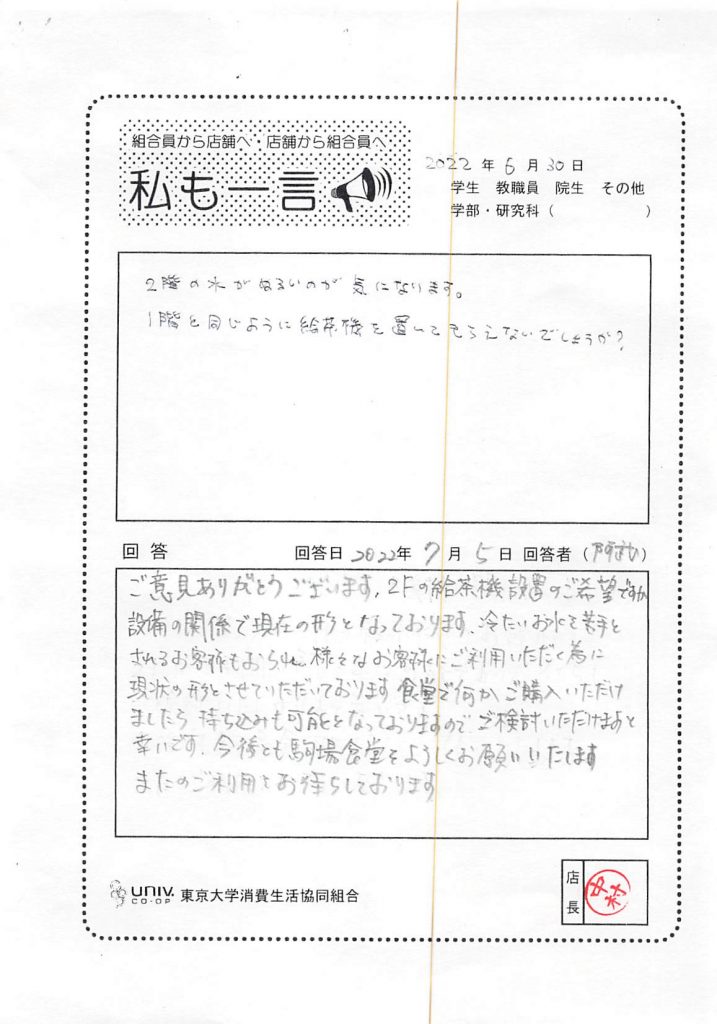 組合員から店舗へ・店舗から組合員へ
私も一言
2022年6月30日
学生 教職員 院生 その他
学部・研究科（ ）
2階の水がぬるいのが気になります。
1階と同じように給茶機を置いてもらえないでしょうか？
回答 回答日2022年7月5日 回答者（ ）
ご意見ありがとうございます。2Fの給茶機設置のご希望ですが
設備の関係で現在の形となっております。冷たいお水を苦手と
されるお客様もおられ、様々なお客様にご利用いただく為に
現状の形とさせていただいております 食堂で何かご購入いただけ
ましたら 持ち込みも可能となっておりますので ご検討いただけますと
幸いです。今後とも駒場食堂をよろしくお願いいたします
またのご利用をお待ちしております
UNIV. CO-OP 東京大学消費生活協同組合
店長
中村